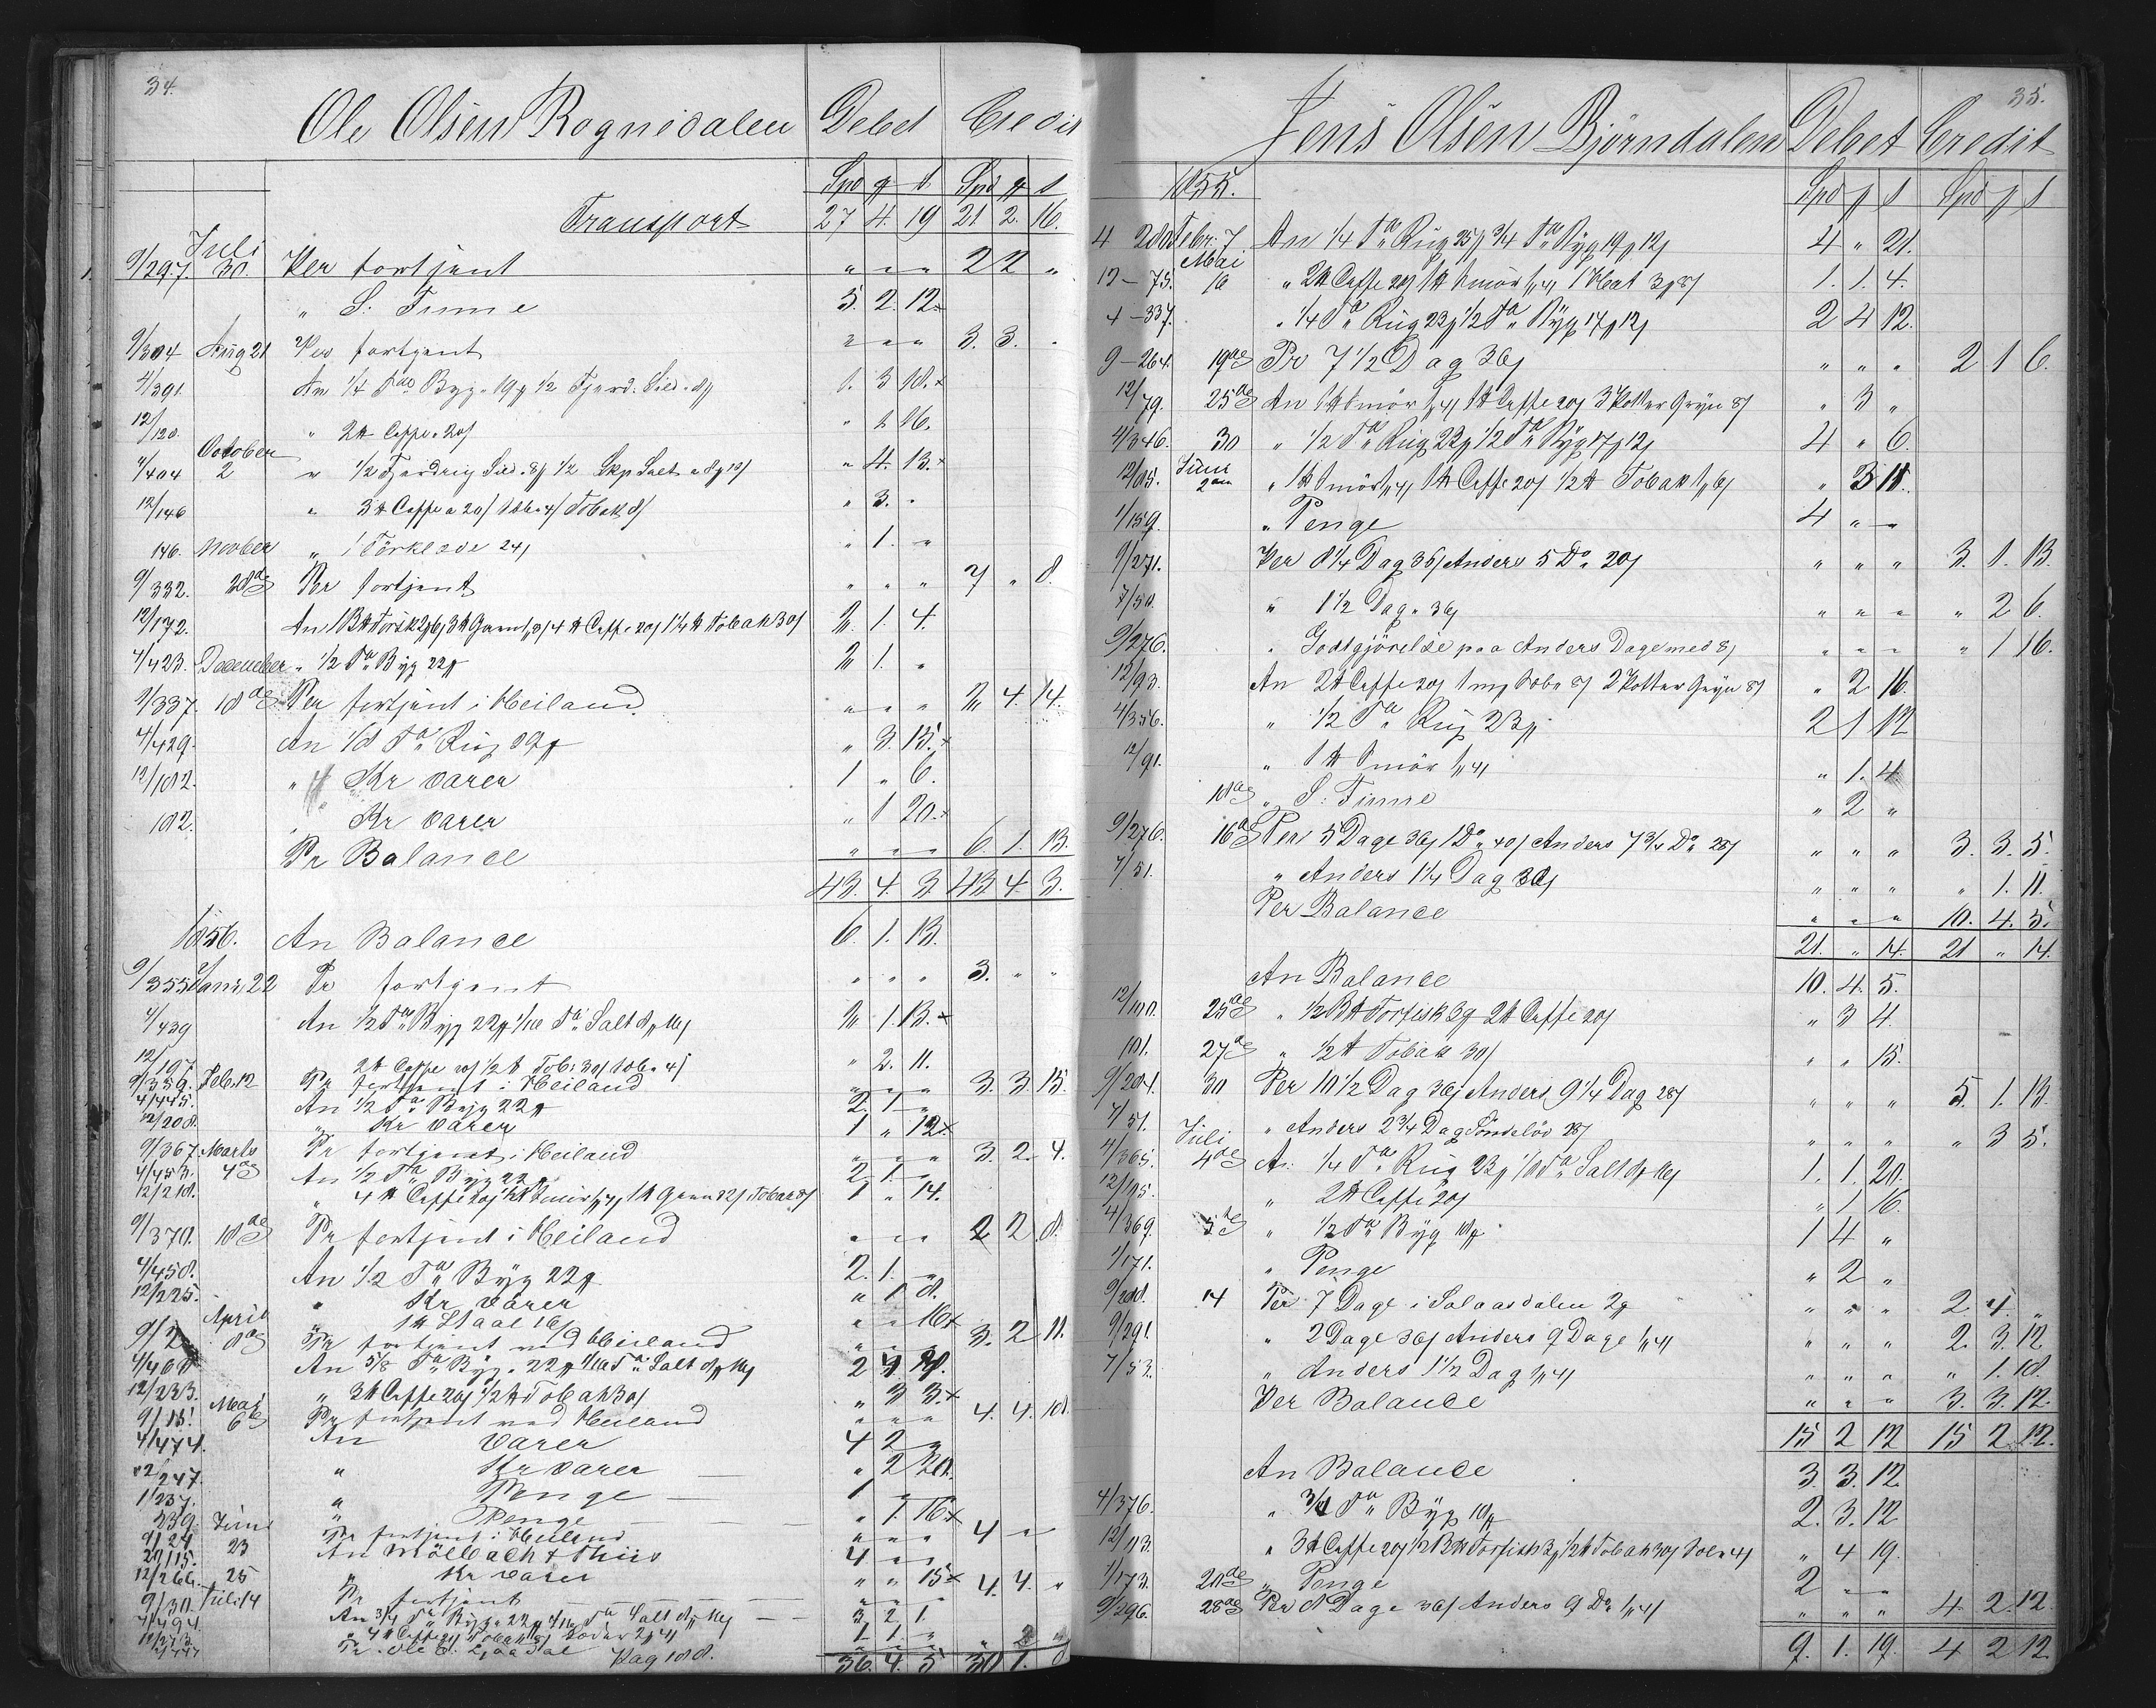 34.
Ole Olsen Rognisdalen Debet Credit
Spd ₰ ß Spd ₰ ß
Transport 27 4. 19 21 2. 16.
Juli
9/297. 30. Per fortjent " " " 2 2 "
" S. Tinne 5. 2. 12.
9/304 Aug 21 Per fortjent " " " 3. 3. "
4/391. An 1/4 Tde Byg. 19 1/2 Fjerd. Sild. 1. 3 18.+
12/120. " 2 ℔ Caffe a 20 ß " 1 16.
October
4/404 2 " 1/2 Fjerdring Sild. 1/2 Skp Salt " 4. 13.+
12/146 " 3 ℔ Caffe a 20 ß Tobak 8 ß " 3. "
146. Novber " 1 Törklæde 24 ß " 1. "
9/332. 28de Pr fortjent " " " 7 " 8.
12/172. An 1 B℔ Torsk 4 ℔ Caffe 20 ß 1 1/4 ℔ Tobak 30 ß 2. 1. 4.
4/423. December " 1/2 Ta Byg 22 2 1. "
9/337. 18de Per fortjent i Heiland " " " 2 4. 14.
4/429. An 1/8 Ta Rug " 3. 15.+
12/182. " Kr varer 1 " 6.
182. " Kr varer " 1 20.+
Pr Balance " " " 6. 1. 13.
43. 4. 3. 43 4. 3.
1856. An Balance 6. 1. 13.
9/355 Janr 22 Pr fortjent " " " 3. " "
4/439 An 1/2 Ta Byg 22 1/16 Ta Salt 2 1. 13.+
12/197 2 ℔ Caffe 20 ß 1/2 ℔ Tob. 30 ß " 2. 11.
9/359. Feb. 12 Pr fortjent i Heiland " " " 3. 3. 15.
4/445. An 1/2 Ta Byg 22 2. 1. "
12/208. " Kr varer 1 " 12+
9/367. Marts Pr fortjent i Heiland " " " 3. 2. 4.
4/453. 4de An 1/2 Ta Byg 22 2. 1. "
12/218. " 4 ℔ Caffe 20 ß Smör 1 ℔ Garn Tobak 8 ß 1 " 14.
9/370. 18de Pr fortjent i Heiland " " " 2 2 8.
4/458. An 1/2 Ta Byg 22 2. 1. "
12/225. " Kr varer " 1 8.
April " 1 ℔ Staal 16 ß " " 16+
9/2 8de Pr fortjent ved Heiland " " " 3. 2 11.
4/468 An 5/8 Ta Byg. 22 1/16 Ta Salt
12/233. " 3 ℔ Caffe 20 ß 1/2 ℔ Tobak 30 ß " 3 3.+
Maj
9/15. 6te Pr fortjent ved Heiland " " " 4. 4. 18.
4/474. An varer 4 2 "
12/247. " Kr varer
1/237. " Penge 1 " "
239. " Penge " 1. 16+
9/24 Juni 23 Pr fortjent i Heiland " " " 4 " "
An Mölbach & Thiis 4 " "
12/266. 25 " Kr varer " " 15+
9/30. Juli 14 Pr fortjent " " " 4. 4. "
4/494. An 3/4 Ta Byg 22 1/16 Ta Salt 3. 2 1.
" 4 ℔ Caffe Tobak 1. 1. "
Pr Ole Pag 188.
36. 4. 5 30 1. 8
35.
Jens Olsen Björndalen Debet Credit
1855. Spd ₰ ß Spd ₰ ß
4 280 Febr. 7 An 1/4 Ta Rug 25 3/4 Ta Byg 19 12 ß 4 " 21.
Mai
12-75. 16 " 2 ℔ Caffe 20 ß 1 ℔ Smör 1 Hat 3 8 ß 1. 1. 4.
4-337. " 1/4 Ta Rug 23 1/2 Ta Byg 17 12 ß 2 4 12.
9-264. 19de Pr 7 1/2 Dag 36 ß " " " 2 1 6.
12/79. 25de An 1 ℔ Smör 1 ℔ Caffe 20 ß 3 Potter Gryn 8 ß " 3 "
4/346. 30 " 1/2 Ta Rug 23 1/2 Ta Byg 17 12 ß 4 " 6.
12/85. Juni 2den " 1 ℔ Smör 1 ℔ Caffe 20 ß 1/2 ℔ Tobak " 3 11.
1/159. " Penge 4 " "
9/271. Per 8 1/4 Dag 36 ß Anders 5 Do 20 ß " " " 3. 1. 13.
7/50. " 1 1/2 Dag a 36 ß " " " " 2 6.
9/276. " Godtgjörelse paa Anders Dage med 8 ß " " " " 1 16.
12/93. An 2 ℔ Caffe 20 ß Tob. 8 ß 2 Potter Gryn 8 ß " 2 16.
4/356. " 1/2 Ta Rug 23 2 1 12
12/91. " 1 ℔ Smör " 1. 4
10de " S. Tinne " 2 "
9/276. 16de Per 5 Dage 36 ß 1 Do 40 ß Anders 7 3/4 Do 28 ß " " " 3. 3. 5.
7/51. " Anders 1 1/4 Dag " " " " 1. 11.
Per Balance " " " 10. 4. 5.
21. " 14. 21 " 14.
An Balance 10. 4. 5.
12/100. 25de " 1/2 B℔ Torfisk 3 2 ℔ Caffe 20 ß " 3 4.
101. 27de " 1/2 ℔ Tobak 30 ß " " 15.
9/284. 30 Per 10 1/2 Dag 36 ß Anders 9 1/4 Dag 28 ß " " " 5. 1. 13.
7/51. " Anders 2 3/4 Dag Söndelöv 28 ß " " " " 3 5.
Juli
4/365. 4de An 1/4 Ta Rug 23 1/8 Ta Salt 1. 1. 20.
12/105. " 2 ℔ Caffe 20 ß " 1 16.
4/369. 5te " 1/2 Ta Byg 18 1 4 "
1/171. " Penge " 2 "
9/288. 14 Per 7 Dage i Solaasdalen 2 " " " 2 4. "
9/291. " 2 Dage 36 ß Anders 9 Dage " " " 2. 3. 12
7/53. " Anders 1 1/2 Dag " " " " 1. 18.
Per Balance " " " 3. 3. 12.
15 2 12 15 2 12.
An Balance 3. 3. 12
4/376. " 3/4 Ta Byg 18 2. 3. 12
12/113. " 3 ℔ Caffe 20 ß 1/2 B℔ Torfisk 3 1/2 ℔ Tobak 30 ß " 4 19.
1/173. 20de " Penge 2 " "
9/296. 28de Per 8 Dage 36 ß Anders 9 Do " " " 4. 2. 12
9. 1. 19. 4 2 12.